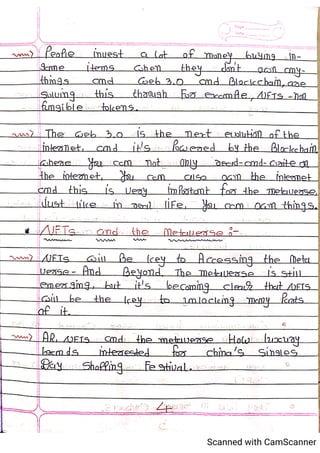 People invest a lot of money buying in-
Game items when they don't own any-
things and Web 3.0 and Blockchain, are
Solving this through For example, NFTs - non
fungible tokens.
The Web 3.0 is the next evolution of the
internet, and it's Powered by the Blockchain
where You can not only read-and-write on
the internet, You can also own the internet
and this is Very important for the metaverse.
Just like in real life, You can own things.
NFTs and the Metaverse :-
NFTs will Be Key to Accessing the Meta
verse - And Beyond, The metaverse is still
emerging, but it's becoming clear that NFTs
will be the Key to unlocking many Parts
of it.
AR, NFTs and the metaverse How luxury
brands interested for china's Singles
Day Shopping Festival.
4
Scanned with CamScanner